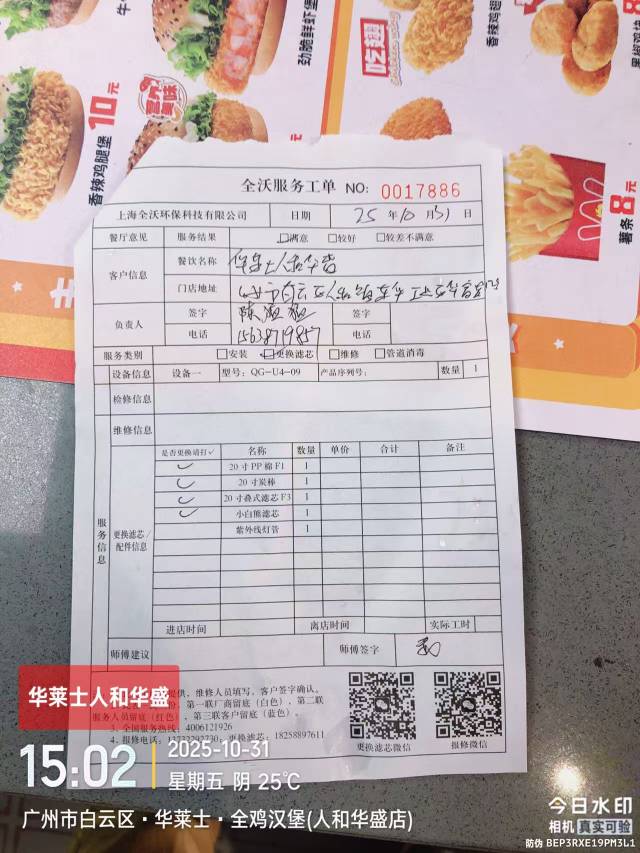 牛
劲脆鲜虾堡
吃翅
香辣鸡翅
8
黑椒鸡块
香辣鸡腿堡
10元
薯条8元
全沃服务工单 NO: 0017886
上海全沃环保科技有限公司 日期 25 年 10 月 31 日
餐厅意见 服务结果 ☑满意 □较好 □较差不满意
客户信息 餐饮名称 华莱士人和华盛
门店地址
负责人 签字 签字
电话 15638719857 电话
服务类别 □安装 ☑更换滤芯 □维修 □管道消毒
设备信息 设备一 型号: QG-U4-09 产品序列号: 数量 1
检修信息
维修信息
服务信息
更换滤芯/配件信息
是否更换请打✓ 名称 数量 单价 合计 备注
✓ 20寸PP棉F1 1
✓ 20寸炭棒 1
✓ 20寸叠式滤芯F3 1
✓ 小白熊滤芯 1
紫外线灯管 1
进店时间 离店时间 实际工时
师傅建议 师傅签字
提供, 维修人员填写, 客户签字确认。
份, 第一联厂商留底(白色)、第二联
服务人员留底(红色)、第三联客户留底(蓝色)。
3、全国服务热线: 4006121926
4、报修电话: 13732282730; 更换滤芯: 18258897611
更换滤芯微信 报修微信
华莱士人和华盛
15:02 2025-10-31
星期五 阴 25℃
广州市白云区·华莱士·全鸡汉堡(人和华盛店)
今日水印
相机 真实可验
防伪 BEP3RXE19PM3L1